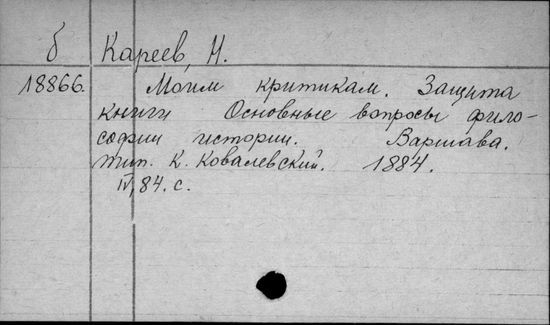 б Кареев, Н.
18866. Моим критикам. Защита
книги Основные вопросы фило-
софии истории. Варшава.
тип. К. Ковалевский. 1884.
IV, 84. с.